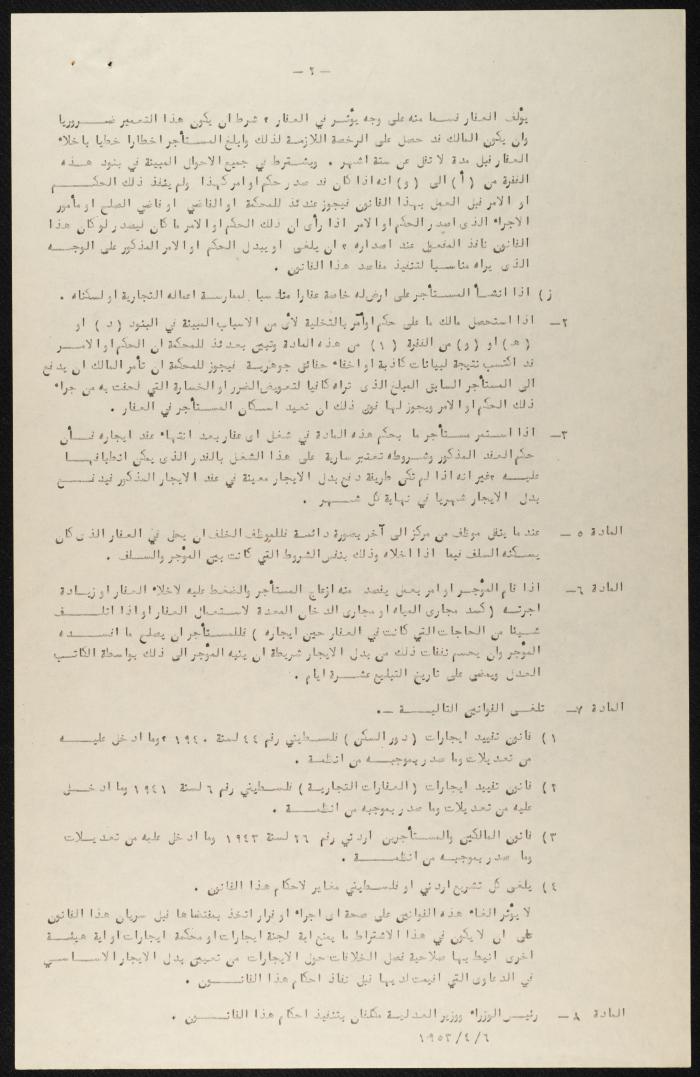 - ٢ -
يؤلف العقار قسما منه على وجه يؤثر في العقار ؟ شرط ان يكون هذا التعمير ضروريا
وان يكون المالك قد حصل على الرخصة اللازمة لذلك وابلغ المستأجر اخطارا خطيا باخلاء
العقار قبل مدة لا تقل عن ستة اشهر . ويشترط في جميع الاحوال المبينة في بنود هذه
الفقرة من (أ) الى (و) انه اذا كان قد صدر حكم او امر كهذا ولم ينفذ ذلك الحكم
او الامر قبل العمل بهذا القانون فيجوز عندئذ للمحكمة او القاضي او قاضي الصلح او مأمور
الاجراء الذي اصدر الحكم او الامر اذا رأى ان ذلك الحكم او الامر ما كان ليصدر لو كان هذا
القانون نافذ المفعول عند اصداره ؟ ان يلغى او يبدل الحكم او الامر المذكور على الوجه
الذي يراه مناسبا لتنفيذ مقاصد هذا القانون .
ز) اذا انشأ المستأجر على ارض له خاصة عقارا مناسبا لممارسة اعماله التجارية او لسكناه .
٢- اذا استحصل مالك ما على حكم او امر بالتخلية لأى من الاسباب المبينة في البنود (د) او
(هـ) او (و) من الفقرة (١) من هذه المادة وتبين بعدئذ للمحكمة ان الحكم او الامر
قد اكتسب نتيجة لبيانات كاذبة او اخفاء حقائق جوهرية فيجوز للمحكمة ان تأمر المالك ان يدفع
الى المستأجر السابق المبلغ الذي تراه كافيا لتعويض الضرر او الخسارة التي لحقت به من جراء
ذلك الحكم او الامر ويجوز لها فوق ذلك ان تعيد اسكان المستأجر في العقار .
٣- اذا استمر مستأجر ما بحكم هذه المادة في شغل اى عقار بعد انتهاء عقد ايجاره فأن
حكم العقد المذكور وشروطه تعتبر سارية على هذا الشغل بالقدر الذي يمكن انطباقها
عليه ؟ غير انه اذا لم تكن طريقة دفع بدل الايجار معينة في عقد الايجار المذكور فيدفع
بدل الايجار شهريا في نهاية كل شهر .
المادة ٥- عند ما ينقل موظف من مركز الى آخر بصورة دائمة فللموظف الخلف ان يحل في العقار الذي كان
يسكنه السلف فيما اذا اخلاه وذلك بنفس الشروط التي كانت بين المؤجر والسلف .
المادة ٦- اذا قام المؤجر او امر بعمل يقصد منه ازعاج المستأجر والضغط عليه لاخلاء العقار او زيادة
اجرته ( كسد مجارى المياه او مجارى الدخان المعدة لاستعمال العقار او اذا اتلف
شيئا من الحاجات التي كانت في العقار حين ايجاره ) فللمستأجر ان يصلح ما افسده
المؤجر وان يحسم نفقات ذلك من بدل الايجار شريطة ان ينبه المؤجر الى ذلك بواسطة الكاتب
العدل ويمضى على تاريخ التبليغ عشرة ايام .
المادة ٧- تلغى القوانين التالية -.
١) قانون تقييد ايجارات ( دور السكن ) فلسطيني رقم ٤٤ لسنة ١٩٤٠ ؟ وما ادخل عليه
من تعديلات وما صدر بموجبه من انظمة .
٢) قانون تقييد ايجارات ( العقارات التجارية ) فلسطيني رقم ٦ لسنة ١٩٤١ وما ادخل
عليه من تعديلات وما صدر بموجبه من انظمة .
٣) قانون المالكين والمستأجرين اردني رقم ٢٦ لسنة ١٩٤٣ وما ادخل عليه من تعديلات
وما صدر بموجبه من انظمة .
٤) يلغى كل تشريع اردني او فلسطيني مغاير لاحكام هذا القانون .
لا يؤثر الغاء هذه القوانين على صحة اى اجراء او قرار اتخذ بمقتضاها قبل سريان هذا القانون
على ان لا يكون في هذا الاشتراط ما يمنع اية لجنة ايجارات او محكمة ايجارات او اية هيئة
اخرى انيط بها صلاحية فصل الخلافات حول الايجارات من تعيين بدل الايجار الاساسي
في الدعاوى التي اقيمت لديها قبل نفاذ احكام هذا القانون .
المادة ٨- رئيس الوزراء ووزير العدلية مكلفان بتنفيذ احكام هذا القانون .
١٩٥٣/٤/٦